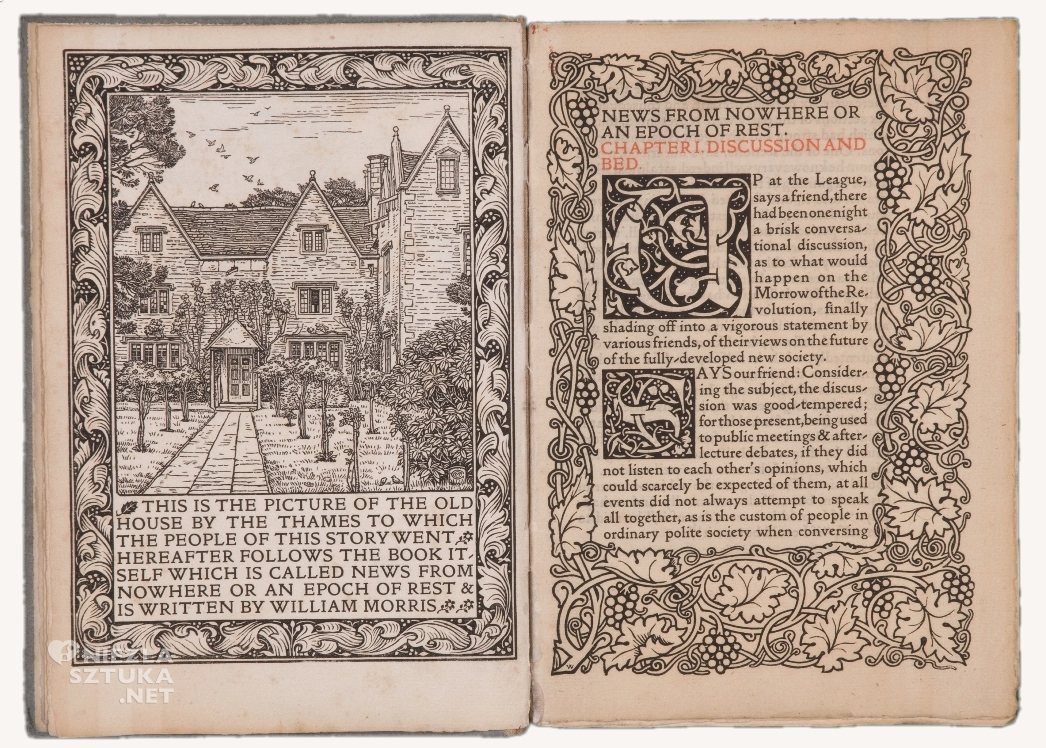 THIS IS THE PICTURE OF THE OLD
HOUSE BY THE THAMES TO WHICH
THE PEOPLE OF THIS STORY WENT
HEREAFTER FOLLOWS THE BOOK IT-
SELF WHICH IS CALLED NEWS FROM
NOWHERE OR AN EPOCH OF REST &
IS WRITTEN BY WILLIAM MORRIS
NIEZŁA
SZTUKA
.NET
NEWS FROM NOWHERE OR
AN EPOCH OF REST.
CHAPTER I. DISCUSSION AND
BED.
UP at the League,
says a friend, there
had been one night
a brisk conversa-
tional discussion,
as to what would
happen on the
Morrow of the Re-
volution, finally
shading off into a vigorous statement by
various friends, of their views on the future
of the fully-developed new society.
SAYS our friend: Consider-
ing the subject, the discus-
sion was good-tempered;
for those present, being used
to public meetings & after-
lecture debates, if they did
not listen to each other's opinions, which
could scarcely be expected of them, at all
events did not always attempt to speak
all together, as is the custom of people in
ordinary polite society when conversing